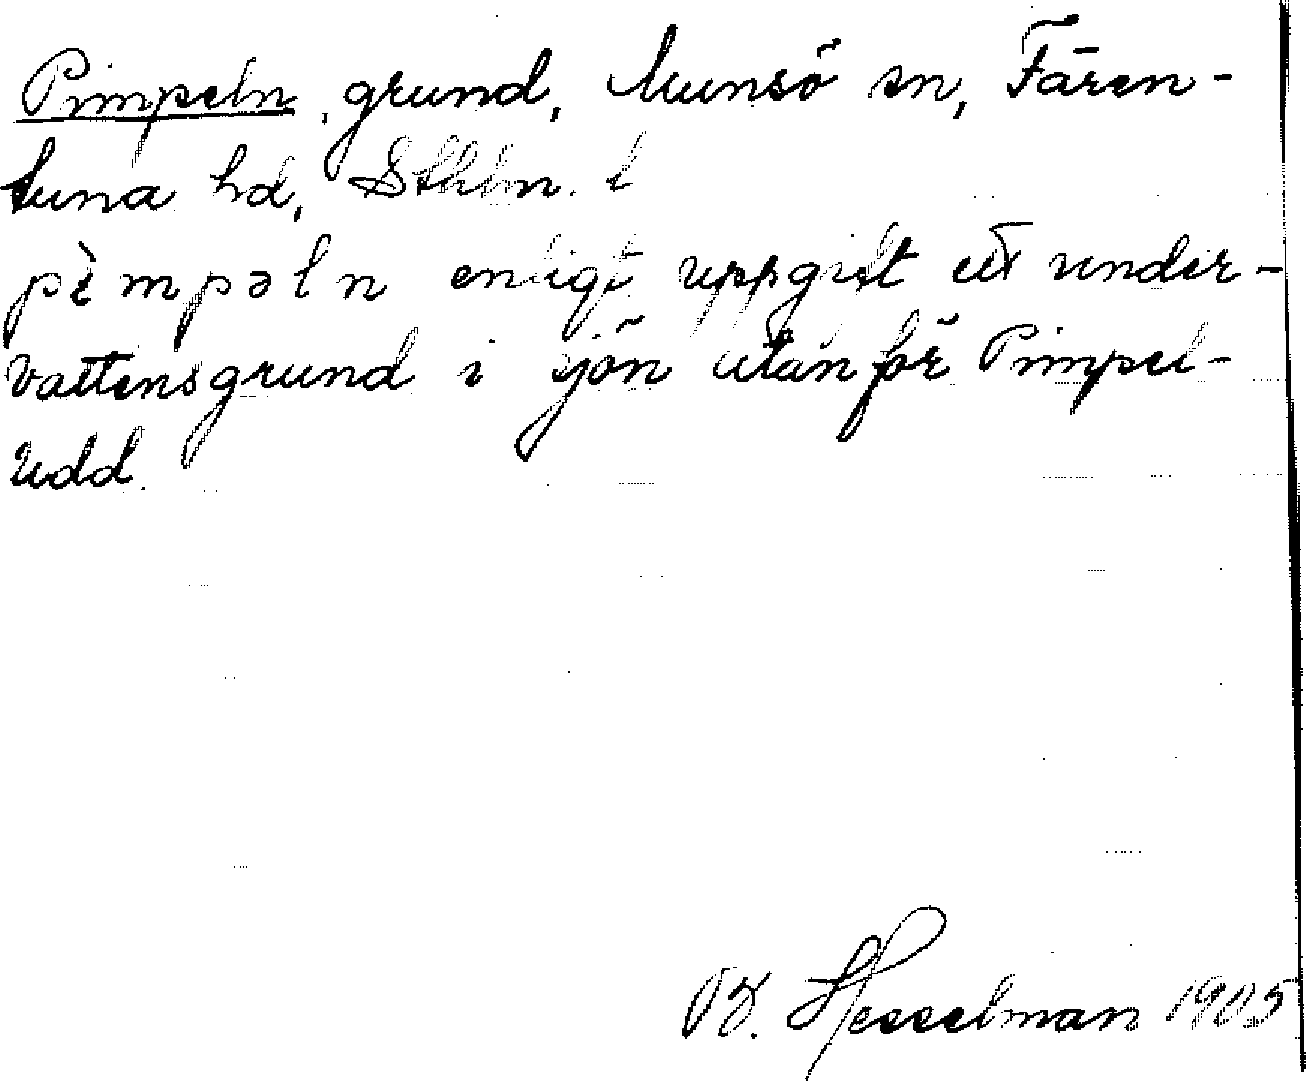 Pimpeln, grund, Munsö sn, Fären-
tuna hd, Sthlm. l
pìmpəln enligt uppgift ett under-
vattensgrund i sjön utanför Pimpel-
udd.
B. Hesselman 1905